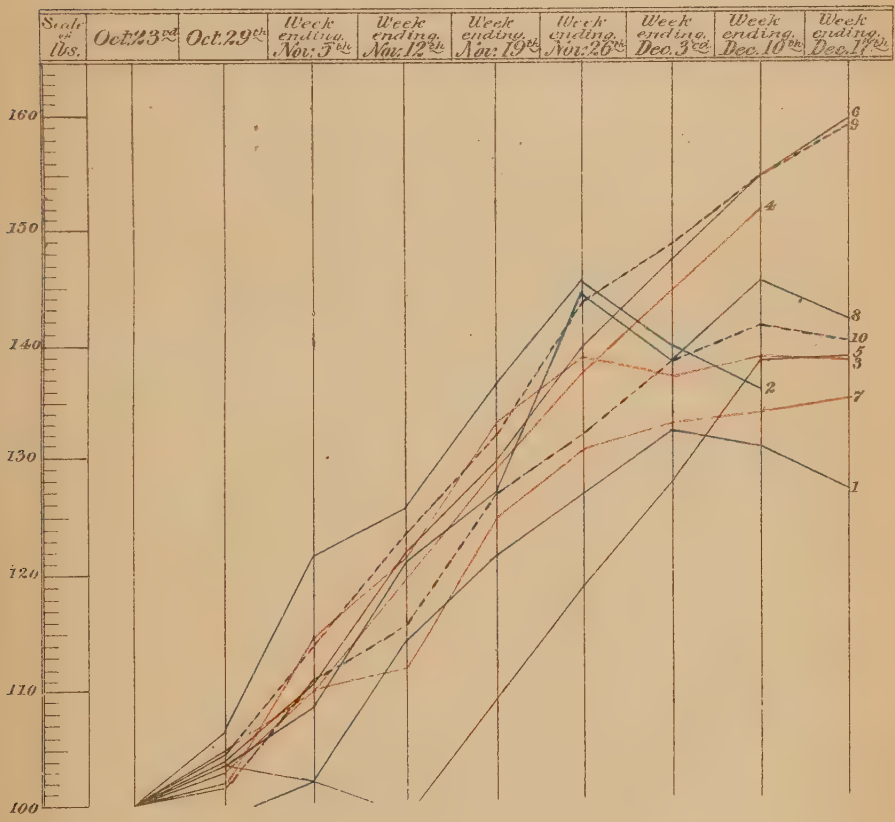 Scale
of
lbs.
Oct. 23rd
Oct. 29th
Week
ending.
Nov. 5th
Week
ending.
Nov. 12th
Week
ending.
Nov. 19th
Week
ending.
Nov. 26th
Week
ending.
Dec. 3rd
Week
ending.
Dec. 10th
Week
ending.
Dec. 17th
160
150
140
130
120
110
100
6
9
4
8
10
5
3
2
7
1